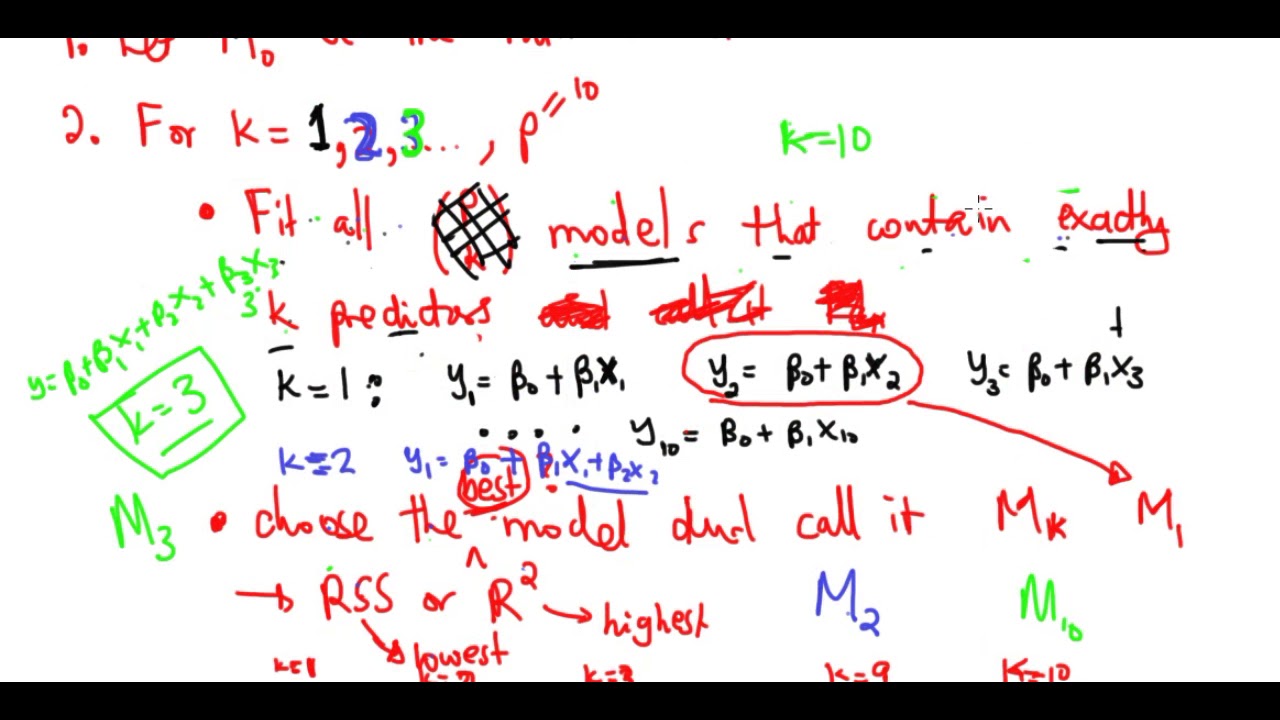 1. Let M₀
2. For k = 1, 2, 3 ..., p = 10
k = 10
• Fit all (p k) models that contain exactly
k predictors
y = β₀ + β₁x₁ + β₂x₂ + β₃x₃
3
k = 3
k = 1 : y₁ = β₀ + β₁x₁ y₂ = β₀ + β₁x₂ y₃ = β₀ + β₁x₃
. . . . y₁₀ = β₀ + β₁x₁₀
k = 2 y₁ = β₀ + β₁x₁ + β₂x₂
best
M₃ • choose the ^ model and call it Mk M₁
→ RSS or R² → highest M₂ M₁₀
lowest
k=1 k=2 k=3 k=9 k=10